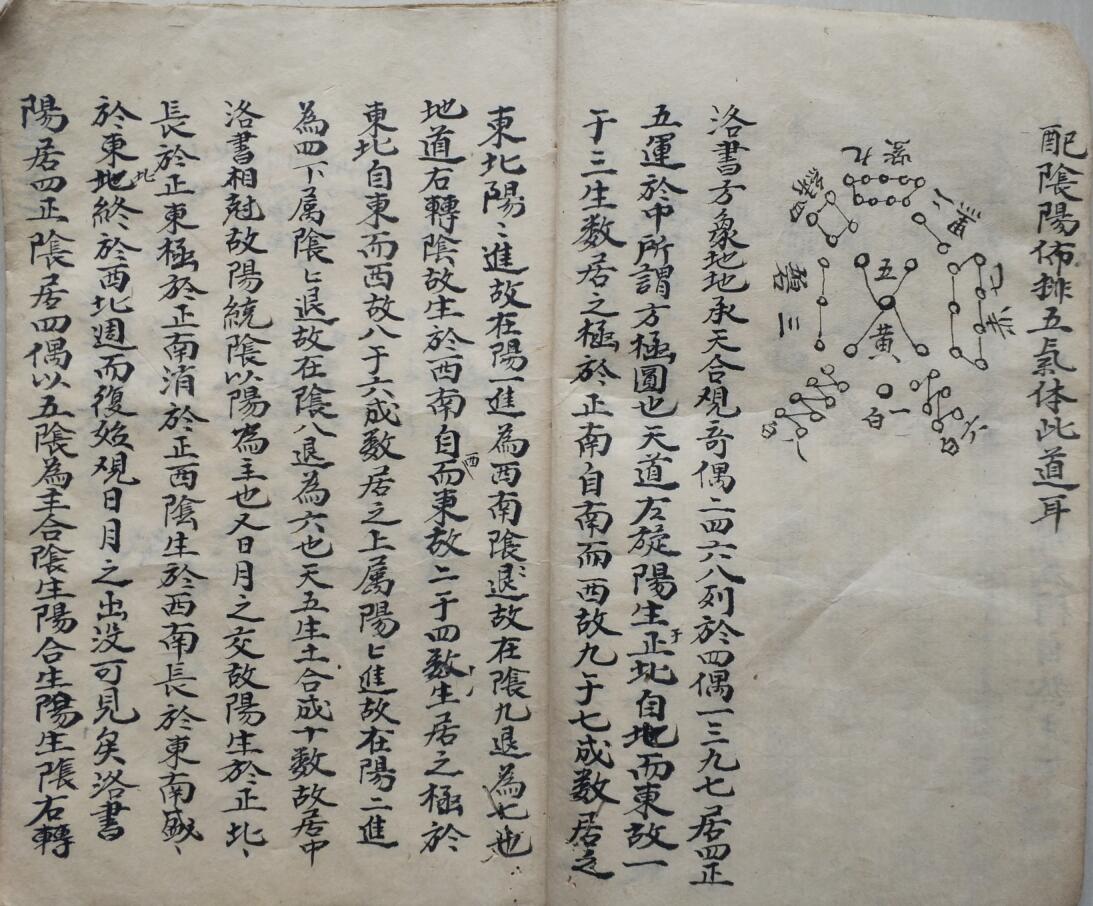 配隂陽佈排五氣体此道耳
紫九
二
四
五
黄
碧三
七
一
白
六
八
洛書方象地地承天合覌奇偶二四六八列於四偶一三九七居四正
五運於中所謂方極圓也天道左旋陽生于正北自地而東故一
于三生数居之極於正南自南而西故九于七成数居之
東北陽〻進故在陽一進為西南隂退故在隂九退為七也
地道右轉陰故生於西南自西而東故二于四数生居之極於
東北自東而西故八于六成数居之上属陽匕進故在陽二進
為四下属隂匕退故在隂八退為六也天五生土合成十数故居中
洛書相尅故陽統隂以陽為主也又日月之交故陽生於正北、
長於正東極於正南消於正西陰生於西南長於東南盛、
於東北終於西北週而復始覌日月之出没可見矣洛書
陽居四正隂居四偶以五隂為主合隂生陽合生陽生隂右轉